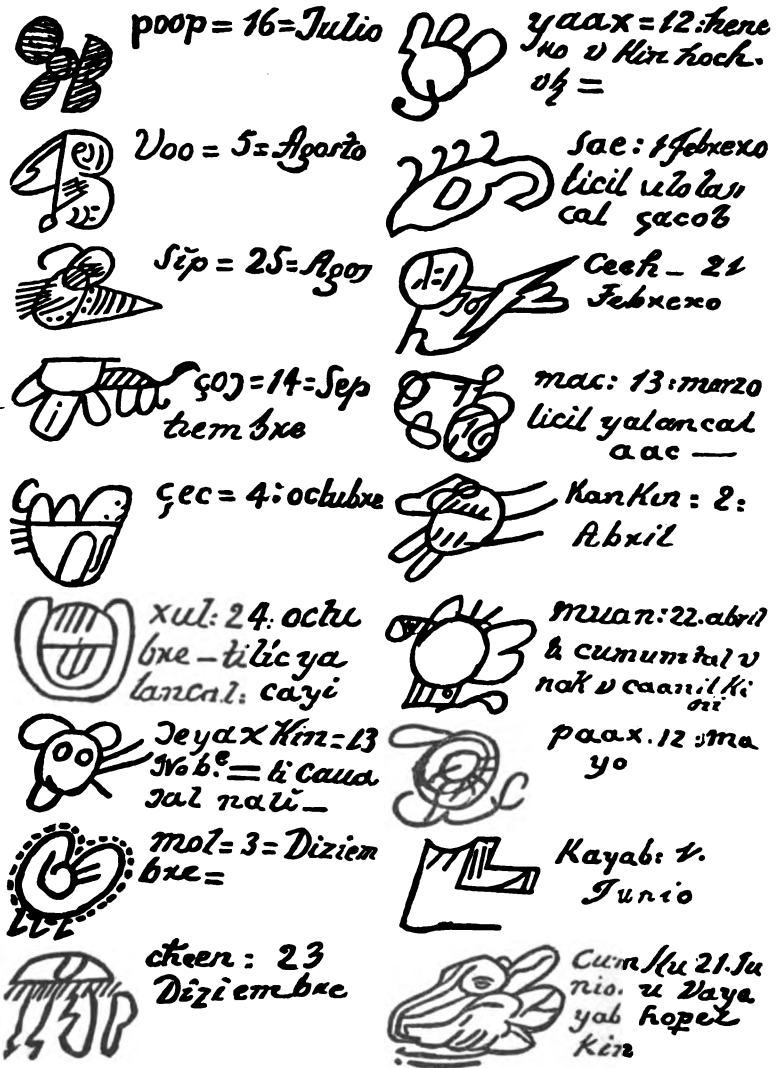 poop = 16 = Julio
Voo = 5 = Agosto
Sip = 25 = Agos
çoɔ = 14 = Sep
tiembre
çec = 4: octubre
xul: 24: octu
bre – ti lic ya
lancal: cayi
Jeyax Kin = 13
Nob.e = ti caua
jal nali –
mol = 3 = Diziem
bre =
cheen : 23
Diziembre
yaax = 12: hene
ro v Kin hoch.
=
Sac: 1 febrero
licil u lolan
cal çacob
Ceeh – 21
Febrero
mac: 13: marzo
licil yalancal
aac —
KanKin : 2:
Abril
muan: 22. abril
ti cumumtal v
nak v caanil ki
ni
paax. 12 : ma
yo
Kayab: 1.
Junio
CumKu 21. Ju
nio. u Vaya
yab hopel
Kin